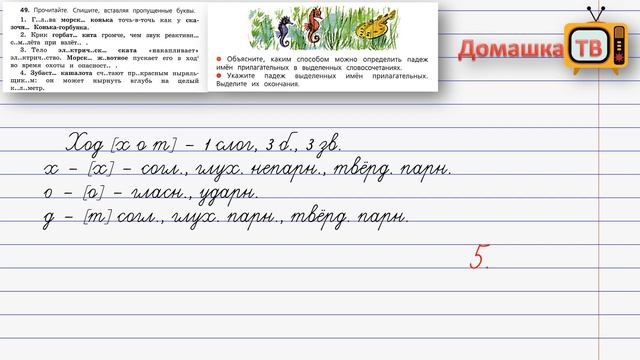 49. Прочитайте. Спишите, вставляя пропущенные буквы.
1. Г...л..ва морск... конька точь-в-точь как у ска-
зочн... Конька-горбунка.
2. Крик горбат... кита громче, чем звук реактивн...
с..м..лёта при взлёт.. .
3. Тело эл..ктрич..ск... ската «накапливает»
эл..ктрич..ство. Морск... ж..вотное пускает его в ход⁵
во время охоты и опасност.. .
4. Зубаст... кашалота сч..тают пр..красным ныряль-
щик..м: он может нырнуть вглубь на целый
к..л..метр.
Объясните, каким способом можно определить падеж
имён прилагательных в выделенных словосочетаниях.
Укажите падеж выделенных имён прилагательных.
Выделите их окончания.
Домашка ТВ
Ход [х о т] – 1 слог, 3 б., 3 зв.
х – [х] – согл., глух. непарн., твёрд. парн.
о – [о] – гласн., ударн.
д – [т] согл., глух. парн., твёрд. парн.
5.